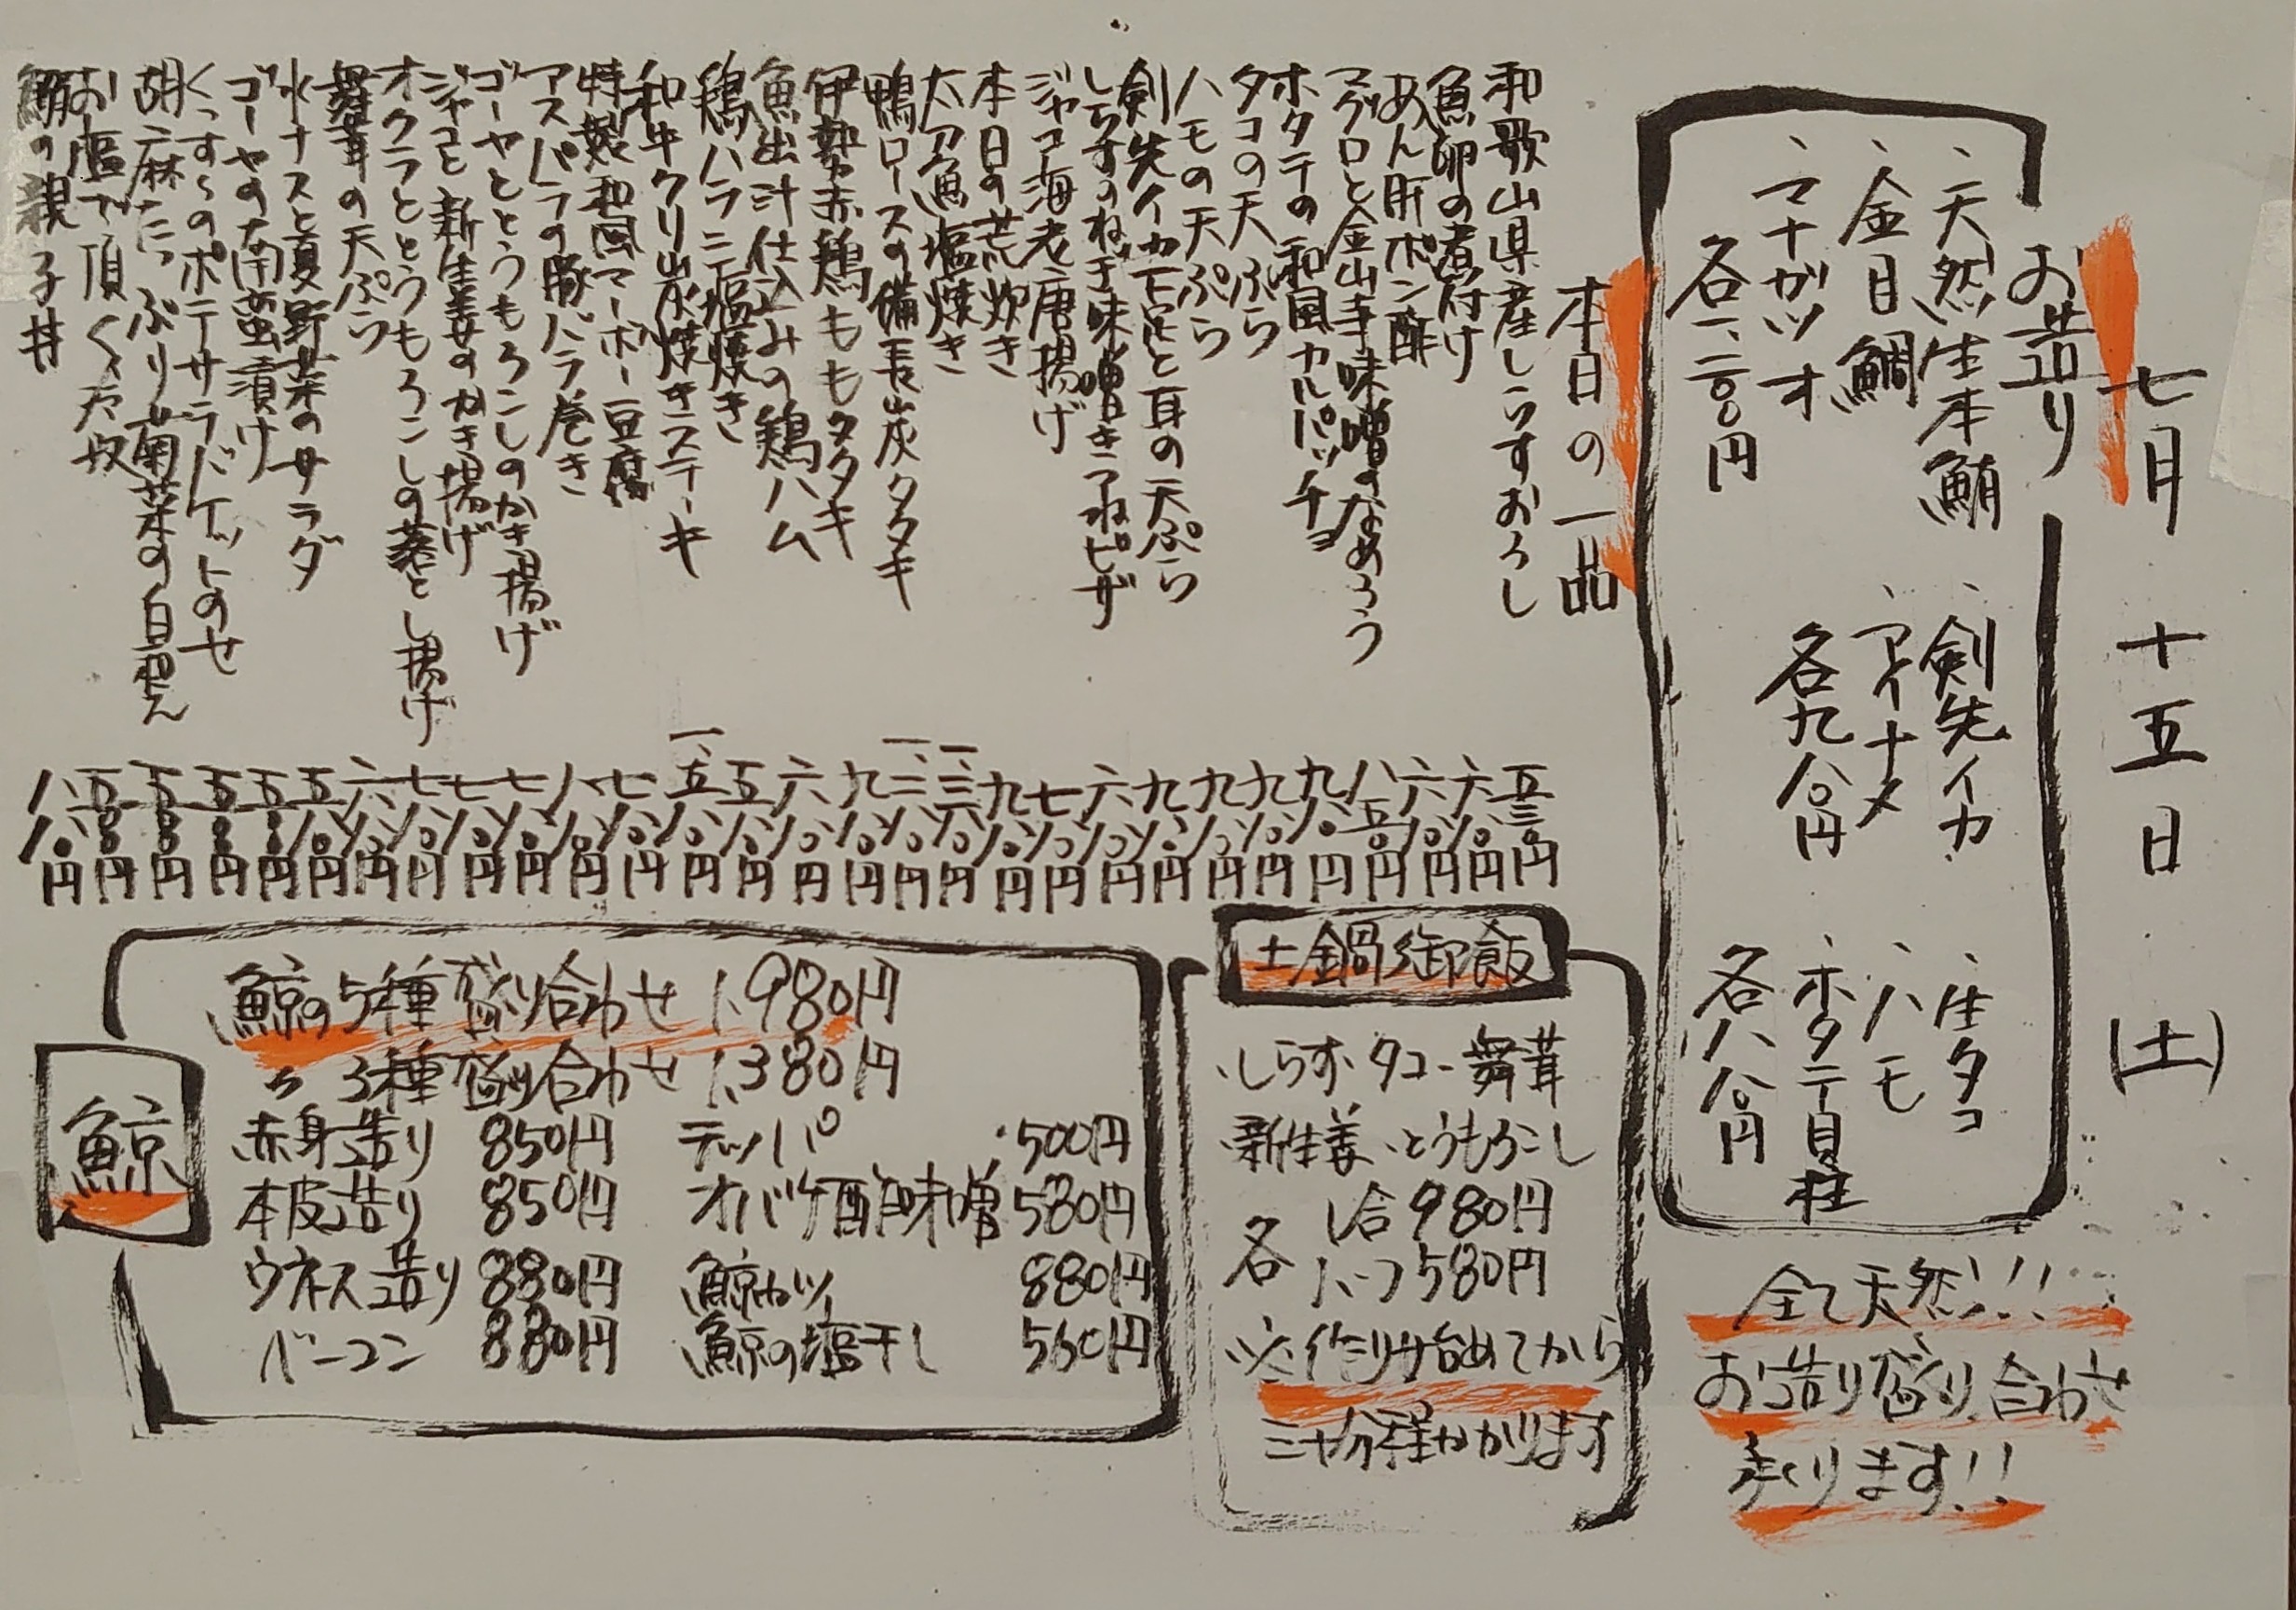 七月 十五日 (土)
お造り
、天然生本鮪
、金目鯛
、マナガツオ
各一、二〇〇円
、剣先イカ
、アイナメ
各九八〇円
、生タコ
、ハモ
、ホタテ貝柱
各八八〇円
全て天然!!
お造り盛り合わせ
承ります!!
本日の一品
和歌山県産しらすおろし 五三〇円
魚卵の煮付け 六八〇円
あん肝ポン酢 六八〇円
マグロと金山寺味噌のなめろう 八五〇円
ホタテの和風カルパッチョ 九八〇円
タコの天ぷら 九八〇円
ハモの天ぷら 九八〇円
剣先イカ下足と耳の天ぷら 九八〇円
しらすのねぎ味噌きつねピザ 六八〇円
ジャコ海老唐揚げ 七八〇円
本日の荒炊き 九八〇円
太刀魚塩焼き 一、三八〇円
鴨ロースの備長炭タタキ 一、三八〇円
伊勢赤鶏ももタタキ 九八〇円
魚出汁仕込みの鶏ハム 六八〇円
鶏ハラミ塩焼き 五八〇円
和牛クリ炭焼きステーキ 一、五八〇円
特製和風マーボー豆腐 七八〇円
アスパラの豚バラ巻き 八八〇円
ゴーヤととうもろこしのかき揚げ 七八〇円
ジャコと新生姜のかき揚げ 七八〇円
オクラととうもろこしの落とし揚げ 七八〇円
舞茸の天ぷら 六八〇円
水ナスと夏野菜のサラダ 五八〇円
ゴーヤの南蛮漬け 五八〇円
くっすくのポテサラバケットのせ 五八〇円
胡麻たっぷり菊菜の白和え 五八〇円
お塩で頂く 五八〇円
鯛の親子丼 八八〇円
土鍋御飯
・しらす・タコ・舞茸
・新生姜・とうもろこし
各 1合980円
ハーフ580円
※作り始めてから
三十分程かかります
鯨
鯨の5種盛り合わせ 1,980円
〃 3種盛り合わせ 1,380円
赤身造り 850円 テッパ 500円
本皮造り 850円 オバケ酢味噌 580円
ウネス造り 880円 鯨カツ 880円
ベーコン 880円 鯨の塩干し 560円